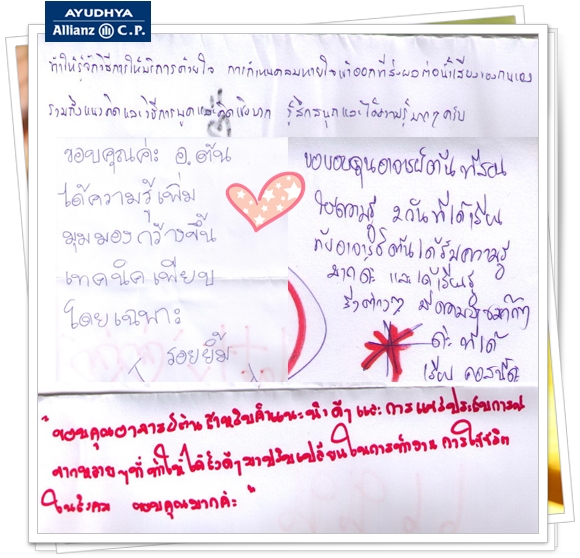 AYUDHYA
Allianz C.P.
ทำให้รู้จักวิธีการให้บริการด้วยใจ การกำหนดลมหายใจเข้าออกที่ส่งผลต่อน้ำเสียงของตนเอง
รวมทั้งแนวคิดและวิธีการพูดและคิดเชิงบวก รู้สึกสนุกและได้ความรู้มากๆครับ
ขอบคุณค่ะ อ.ตัน
ได้ความรู้เพิ่ม
มุมมองกว้างขึ้น
เทคนิคเพียบ
โดยเฉพาะ
รอยยิ้ม
ขอขอบคุณอาจารย์ตันที่สอน
ให้ความรู้ 2 วันที่ได้เรียน
กับอาจารย์ตันได้รับความรู้
มากค่ะ และได้เรียนรู้
สิ่งต่างๆ
ค่ะ ที่ได้
เรียน คอสนี้ค่ะ
"ขอบคุณอาจารย์ตันสำหรับคำแนะนำดีๆ และ การแชร์ประสบการณ์
หลายๆที่ ทำให้ได้สิ่งดีๆมาปรับเปลี่ยนในการทำงาน การใช้ชีวิต
ในสังคม ขอบคุณมากค่ะ"